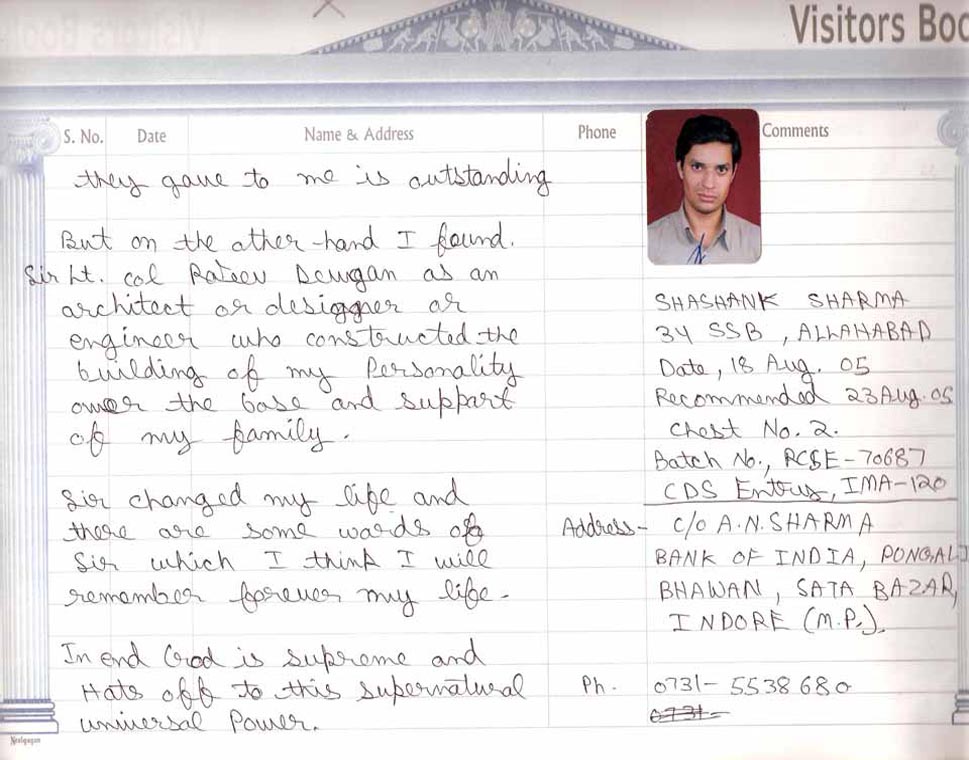 Visitors Boo
S. No. Date Name & Address Phone Comments
they gave to me is outstanding
But on the other-hand I found.
Sir Lt. col Rajeev Dewgan as an
architect or desiggner or
engineer who constructed the
building of my Personality
over the base and support
of my family.
Sir changed my life and
there are some words of
Sir which I think I will
remember forever my life.
In end God is supreme and
Hats off to this supernatural
universal Power.
SHASHANK SHARMA
34 SSB, ALLAHABAD
Date, 18 Aug. 05
Recommended 23 Aug. 05
Chest No. 2.
Batch No., RCSE-70687
CDS Entry, IMA-120
Address- C/O A.N. SHARMA
BANK OF INDIA, PONGALI
BHAWAN, SATA BAZAR,
INDORE (M.P.).
Ph. 0731-5538680
0731-
Neelgagan